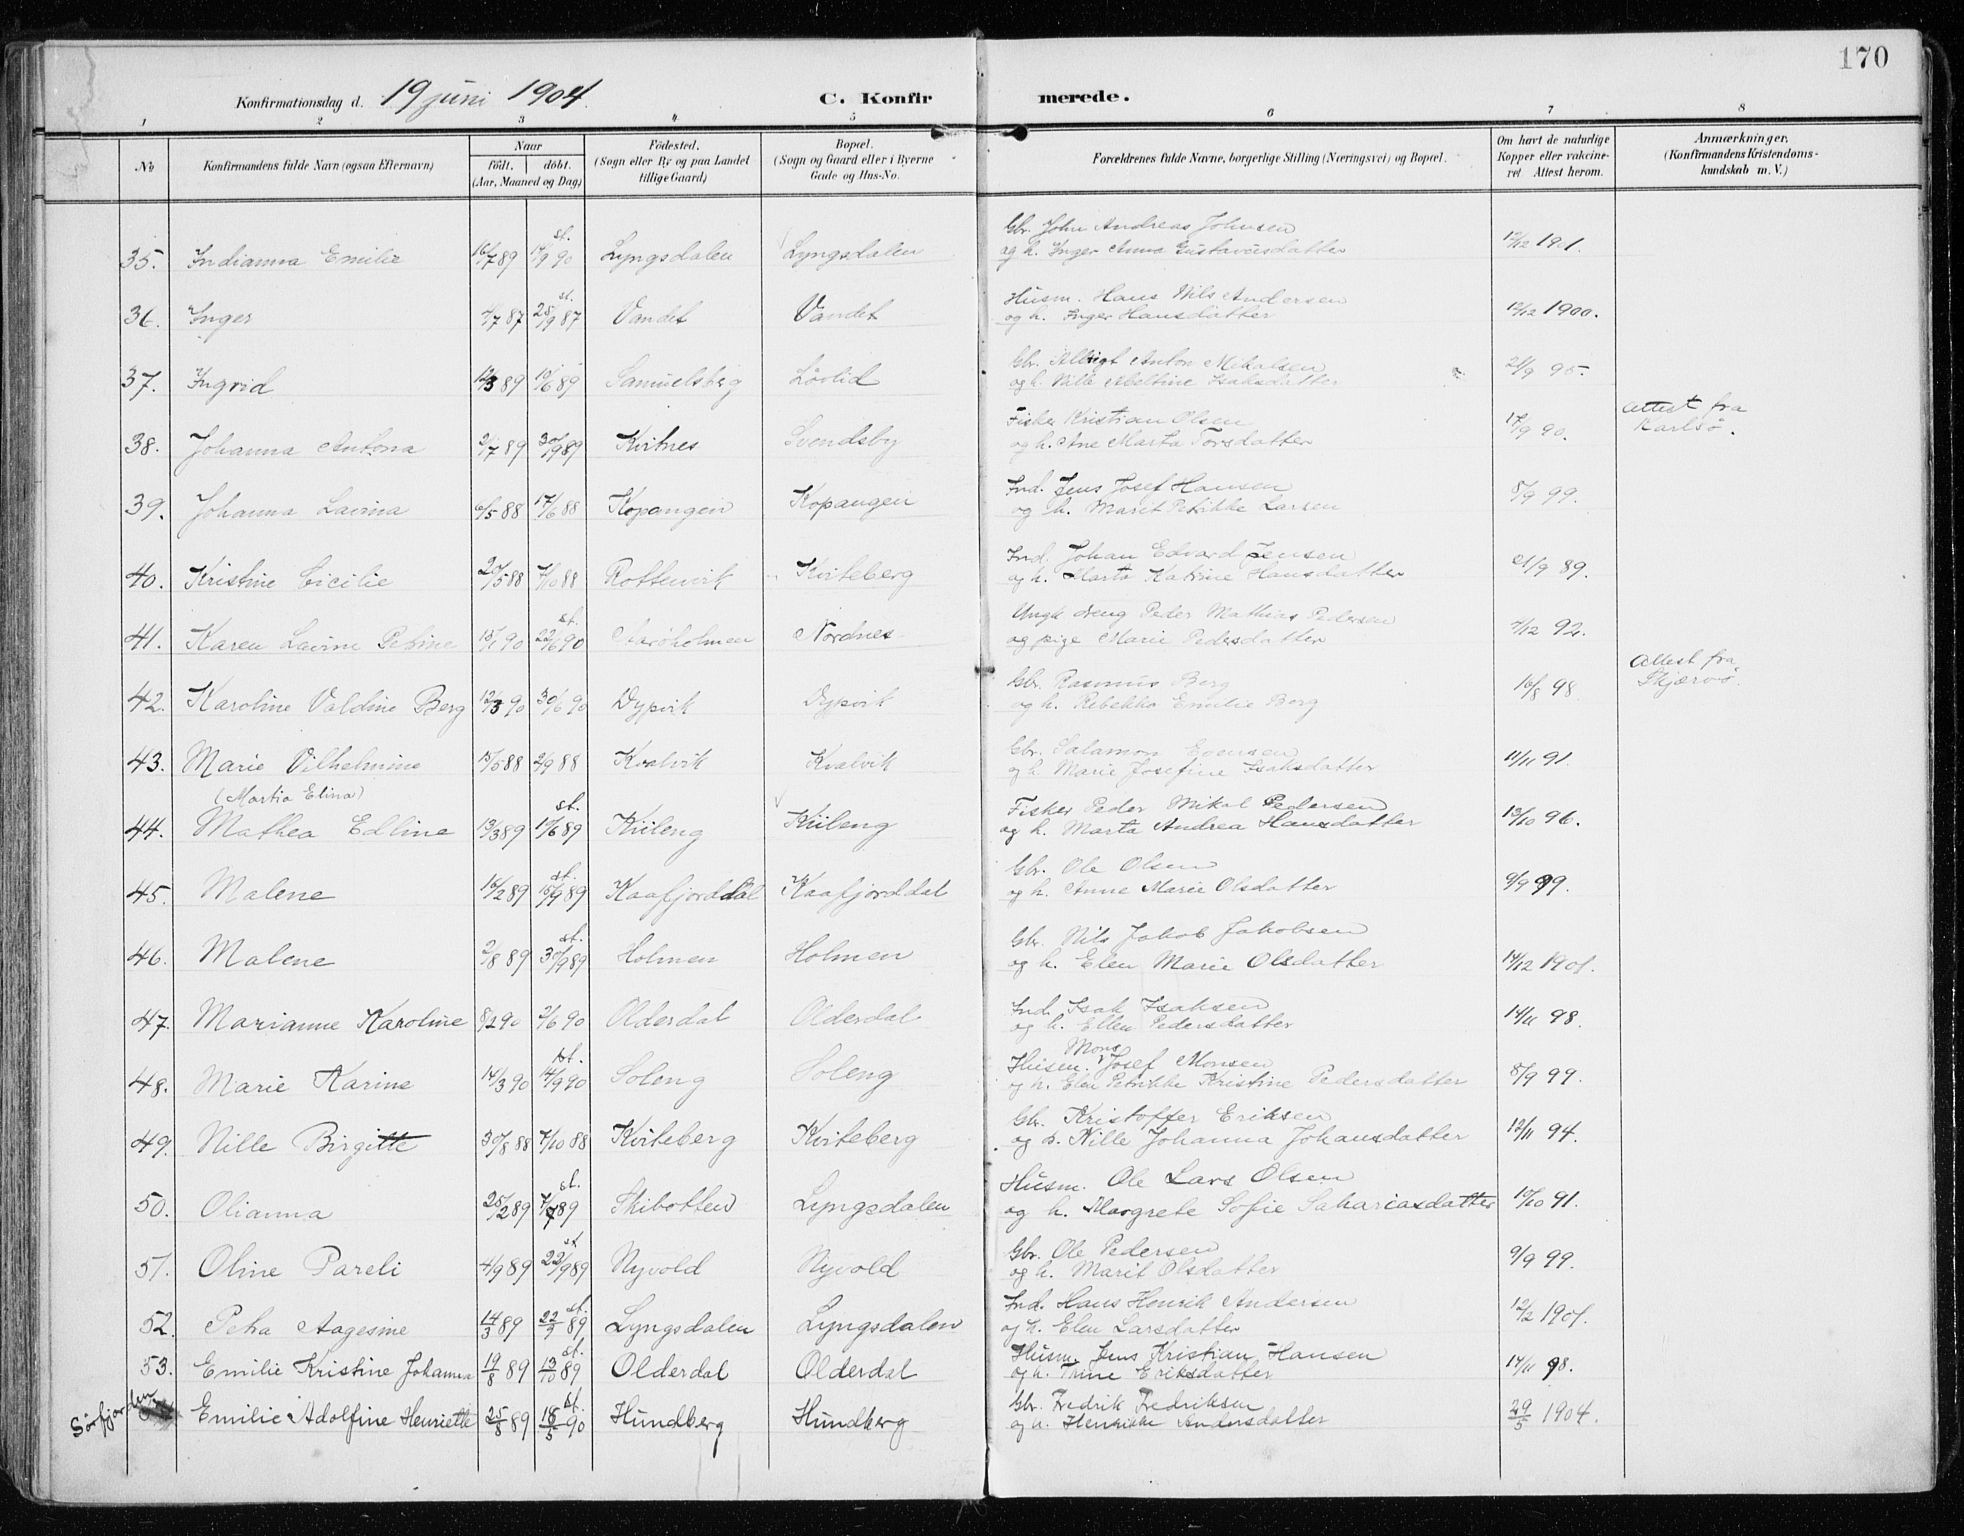 170
Konfirmationsdag d. 19 juni 1904. C. Konfirmerede.
1 2 3 4 5 6 7 8
No Konfirmandens fulde Navn (ogsaa Efternavn) Naar født, døbt. (Aar, Maaned og Dag) Fødested. (Sogn eller By og paa Landet tillige Gaard) Bopæl. (Sogn og Gaard eller i Byerne Gade og Hus-No. Forældrenes fulde Navne, borgerlige Stilling (Næringsvei) og Bopæl. Om havt de naturlige Kopper eller vakcineret Attest herom. Anmærkninger, (Konfirmandens Kristendomskundskab m. V.)
Gbr. John Andreas Johnsen
35. Indianna Emilie 16/7 89 st. 90 Lyngsdalen Lyngsdalen og h. Inger Anna Gustavasdatter 12/12 1901.
Husm. Hans Nils Andersen
36. Inger 87 st. 28/9 87 Vandet Vandet og h. Inger Hansdatter 12/12 1900.
Gbr. Anton Mikalsen
37. Ingrid 12/3 89 10/6 89 Samuelsberg Løvlid og h. Nille Abeltine Isaksdatter 21/9 95.
Fisker Kristian Olsen Attest fra
38. Johanna Antona 21/7 89 30/9 89 Kvitnes Svendsby og h. Ane Marta Torsdatter 17/9 90. Karlsø.
Ind. Jens Josef Hansen
39. Johanna Lavina 6/5 88 17/6 88 Kopangen Kopangen og h. Marit Petrikke Larsen 8/9 99.
Ind. Johan Edvard Jensen
40. Kristine Cicilie 20/5 88 7/10 88 Rottenvik Kviteberg og h. Marta Katrine Hansdatter 21/9 89.
Ungk dreng Peder Mathias Pedersen
41. Karen Lavine Petrine 15/1 90 st. 22/6 90 Aarøholmen Nordnes og pige Marie Pedersdatter 92.
Gbr. Rasmus Berg Attest fra
42. Karoline Valdine Berg 12/3 90 30/6 90 Dypvik Dypvik og h. Rebekka Emilie Berg 16/8 98. Skjærvø.
Gbr. Salamon Evensen
43. Marie Vilhelmine 15/5 88 2/9 88 Kvalvik Kvalvik og h. Marie Josefine Isaksdatter 11/11 91.
(Martia Elina) Fisker Peder Mikal Pedersen
44. Mathea Edline 13/3 89 st. 10/6 89 Kiileng Kiileng og h. Marta Andrea Hansdatter 13/10 96.
Gbr. Ole Olsen
45. Malene 16/2 89 st. 15/9 89 Kaafjorddal Kaafjorddal og h. Anne Marie Olsdatter 9/9 99.
Gbr. Nils Jakob Jakobsen
46. Malene 2/8 89 st. 30/9 89 Holmen Holmen og h. Elen Marie Olsdatter 14/12 1901.
Ind. Isak Isaksen
47. Marianne Karoline 8/2 90 2/6 90 Olderdal Olderdal og h. Ellen Pedersdatter 14/11 98.
Mons
Husm. Josef Monsen
48. Marie Karine 14/3 90 st. 14/9 90 Soleng Soleng og h. Elen Petrikke Kristine Pedersdatter 8/9 99.
Gbr. Kristoffer Eriksen
49. Nille Birgitte 30/8 88 7/10 88 Kviteberg Kviteberg og h. Nille Johanna Johansdatter 12/11 94.
Husm. Ole Lars Olsen
50. Olianna 25/2 89 st. 7/7 89 Skibotten Lyngsdalen og h. Margrete Sofie Sahariasdatter 10/10 91.
Gbr. Ole Pedersen
51. Oline Pareli 4/9 89 st. 22/9 89 Nyvold Nyvold og h. Marit Olsdatter 9/9 99.
Ind. Hans Henrik Andersen
52. Petra Aagesine 14/3 89 st. 22/9 89 Lyngsdalen Lyngsdalen og h. Elen Larsdatter 12/2 1901.
Husm. Jens Kristian Hansen
53. Emilie Kristine Johanna 19/8 89 st. 13/10 89 Olderdal Olderdal og h. Trine Eriksdatter 14/11 98.
Gbr. Fredrik Fredriksen
Sørfjorden Emilie Adolfine Henriette 25/8 89 st. 18/5 90 Hundberg Hundberg og h. Henrikke Andersdatter 29/5 1904.